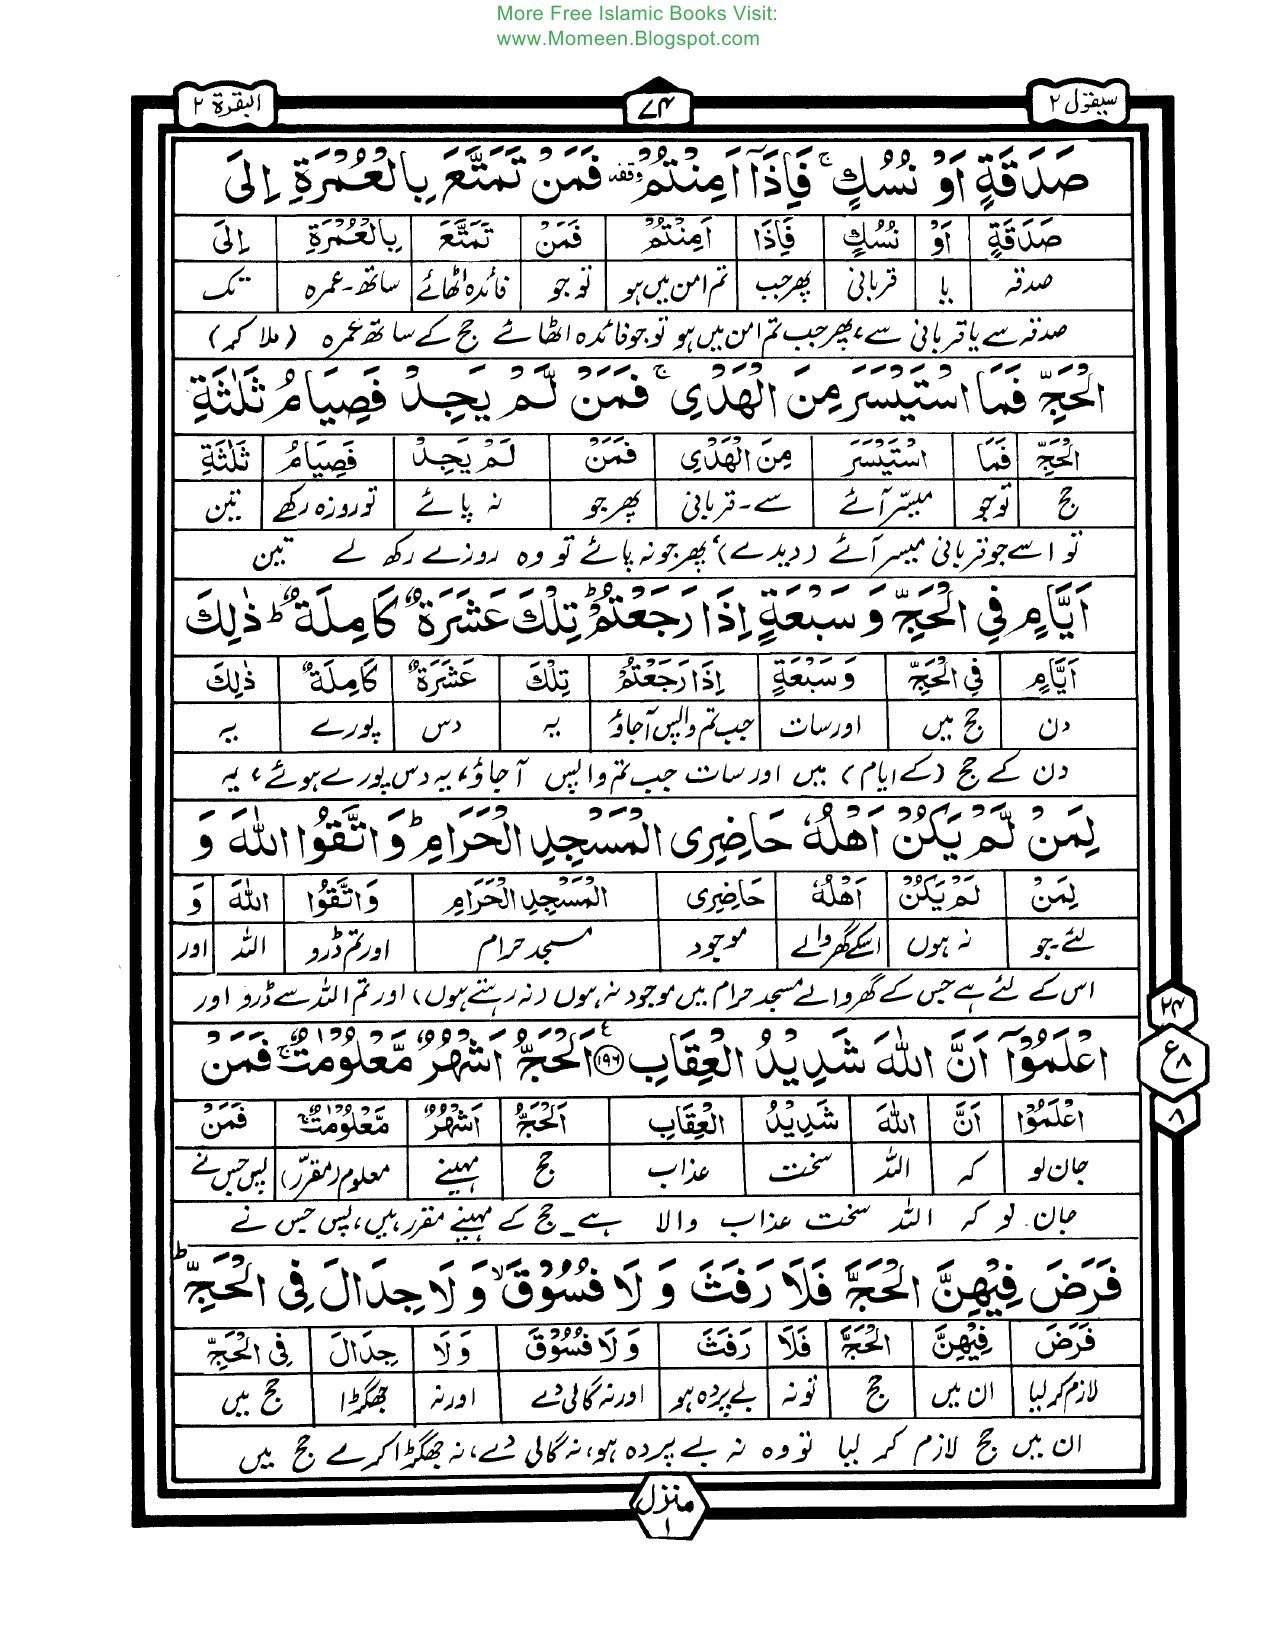 More Free Islamic Books Visit:
www.Momeen.Blogspot.com
سيقول ٢ ۷۴ البقرة ٢
صَدَقَةٍ اَوْ نُسُكٍ ۚ فَاِذَاۤ اَمِنْتُمْ وقفة فَمَنْ تَمَتَّعَ بِالْعُمْرَةِ اِلَى
صَدَقَةٍ اَوْ نُسُكٍ فَاِذَا اَمِنْتُمْ فَمَنْ تَمَتَّعَ بِالْعُمْرَةِ اِلَى
صدقہ یا قربانی پھرجب تم امن میں ہو تو جو فائدہ اٹھائے ساتھ-عمرہ تک
صدقہ سے یا قربانی سے، پھر جب تم امن میں ہو تو جو فائدہ اٹھائے حج کے ساتھ عمرہ (ملا کر)
الْحَجِّ فَمَا اسْتَيْسَرَ مِنَ الْهَدْيِ ۚ فَمَنْ لَّمْ يَجِدْ فَصِيَامُ ثَلٰثَةِ
الْحَجِّ فَمَا اسْتَيْسَرَ مِنَ الْهَدْيِ فَمَنْ لَمْ يَجِدْ فَصِيَامُ ثَلٰثَةِ
حج توجو میسّر آئے سے-قربانی پھر جو نہ پائے تو روزہ رکھے تین
تو اسے جو قربانی میسر آئے (دیدے)، پھر جو نہ پائے تو وہ روزے رکھ لے تین
اَيَّامٍ فِي الْحَجِّ وَ سَبْعَةٍ اِذَا رَجَعْتُمْ ؕ تِلْكَ عَشَرَةٌ كَامِلَةٌ ؕ ذٰلِكَ
اَيَّامٍ فِي الْحَجِّ وَ سَبْعَةٍ اِذَا رَجَعْتُمْ تِلْكَ عَشَرَةٌ كَامِلَةٌ ذٰلِكَ
دن حج میں اور سات جب تم واپس آجاؤ یہ دس پورے یہ
دن کے حج (کے ایام) میں اور سات جب تم واپس آ جاؤ، یہ دس پورے ہوئے، یہ
لِمَنْ لَّمْ يَكُنْ اَهْلُهٗ حَاضِرِى الْمَسْجِدِ الْحَرَامِ ؕ وَ اتَّقُوا اللّٰهَ وَ
لِمَنْ لَمْ يَكُنْ اَهْلُهٗ حَاضِرِى الْمَسْجِدِ الْحَرَامِ وَاتَّقُوا اللّٰهَ وَ
لئے-جو نہ ہوں اسکے گھر والے موجود مسجد حرام اور تم ڈرو اللہ اور
اس کے لئے ہے جس کے گھر والے مسجد حرام میں موجود نہ ہوں (نہ رہتے ہوں) اور تم اللہ سے ڈرو اور
اعْلَمُوْۤا اَنَّ اللّٰهَ شَدِيْدُ الْعِقَابِ ﴿١٩٦﴾ ع اَلْحَجُّ اَشْهُرٌ مَّعْلُوْمٰتٌ ۚ فَمَنْ
۲۴
ع ۸
۸
اعْلَمُوْا اَنَّ اللّٰهَ شَدِيْدُ الْعِقَابِ اَلْحَجُّ اَشْهُرٌ مَّعْلُوْمٰتٌ فَمَنْ
جان لو کہ اللہ سخت عذاب حج مہینے معلوم (مقرر) پس جس نے
جان لو کہ اللہ سخت عذاب والا ہے۔ حج کے مہینے مقرر ہیں، پس جس نے
فَرَضَ فِيْهِنَّ الْحَجَّ فَلَا رَفَثَ وَ لَا فُسُوْقَ ۙ وَ لَا جِدَالَ فِى الْحَجِّ ؕ
فَرَضَ فِيْهِنَّ الْحَجَّ فَلَا رَفَثَ وَ لَا فُسُوْقَ وَلَا جِدَالَ فِى الْحَجِّ
لازم کر لیا ان میں حج تو نہ بے پردہ ہو اور نہ گالی دے اور نہ جھگڑا حج میں
ان میں حج لازم کر لیا تو وہ نہ بے پردہ ہو، نہ گالی دے، نہ جھگڑا کرے حج میں
منزل ١